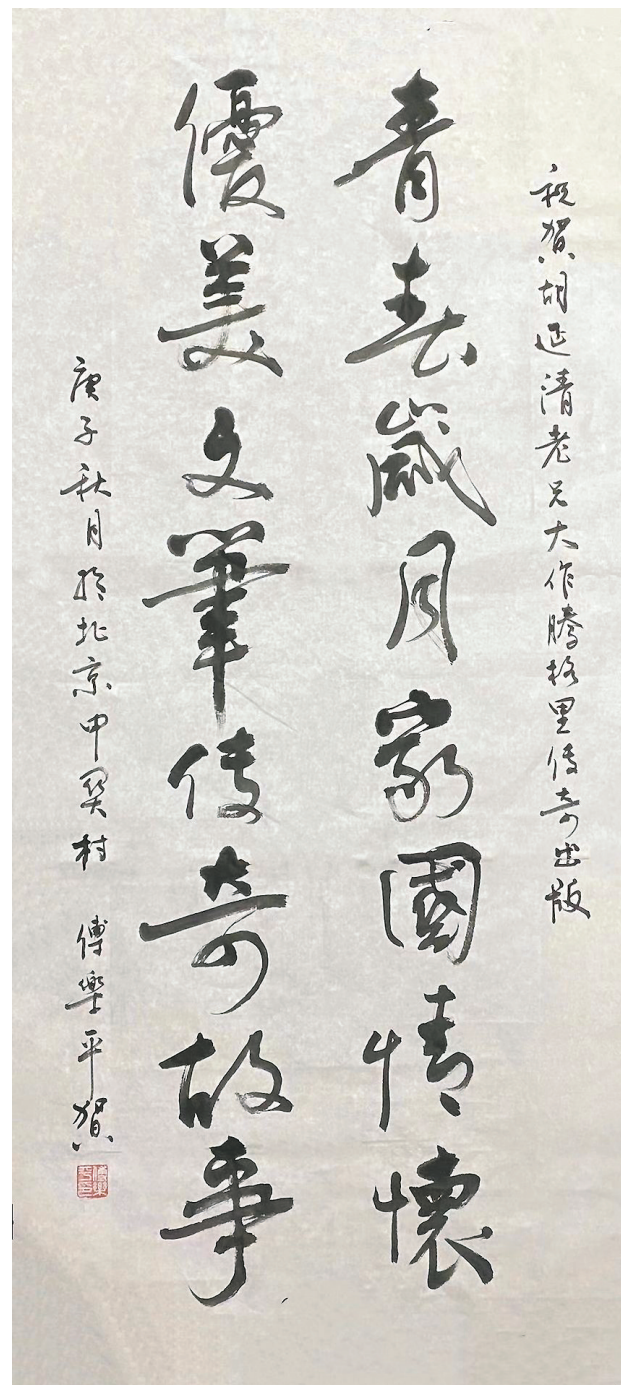 祝贺胡延清老兄大作腾格里传奇出版
青春歲月家國情懷
優美文筆传奇故事
庚子秋月於北京中关村 傅樂平贺